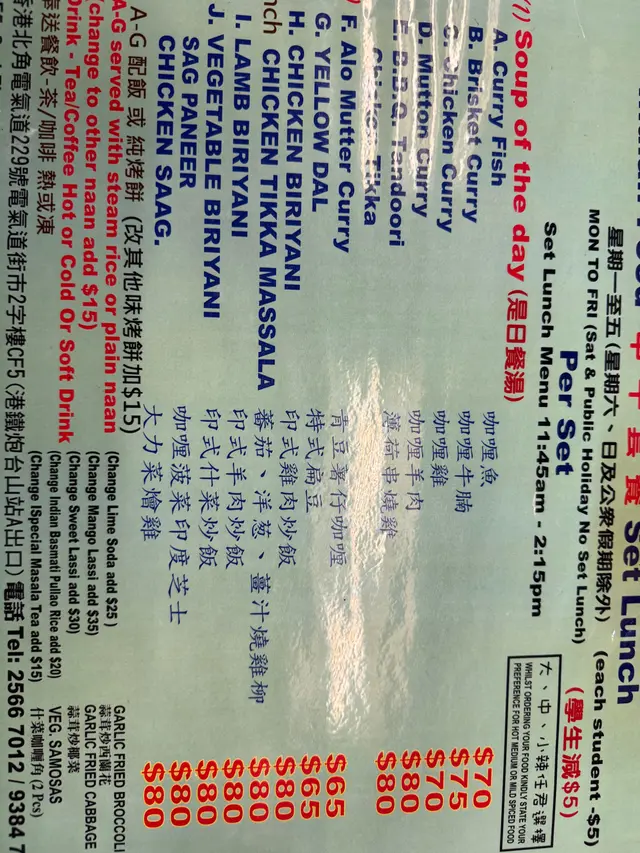 午 十 長 賓 Set Lunch
星期一至五(星期六、日及公衆假期除外) (each student -$5)
MON TO FRI (Sat & Public Holiday No Set Lunch) (學生減$5)
Per Set
Set Lunch Menu 11:45am - 2:15pm
大、中、小辣任君選擇
WHILST ORDERING YOUR FOOD KINDLY STATE YOUR
PREFERENCE FOR HOT MEDIUM OR MILD SPICED FOOD
(1) Soup of the day (是日餐湯)
A. Curry Fish 咖喱魚 $70
B. Brisket Curry 咖喱牛腩 $75
C. Chicken Curry 咖喱雞 $70
D. Mutton Curry 咖喱羊肉 $80
E. B.B.Q. Tandoori 薄荷串燒雞 $80
Chicken Tikka
F. Alo Mutter Curry 青豆薯仔咖喱 $65
G. YELLOW DAL 特式扁豆 $65
H. CHICKEN BIRIYANI 印式雞肉炒飯 $80
CHICKEN TIKKA MASSALA 番茄、洋葱、薑汁燒雞柳 $80
I. LAMB BIRIYANI 印式羊肉炒飯 $80
J. VEGETABLE BIRIYANI 印式什菜炒飯 $80
SAG PANEER 咖喱菠菜印度芝士 $80
CHICKEN SAAG. 大力菜燴雞 $80
A-G 配飯 或 純烤餅 (改其他味烤餅加$15)
A-G served with steam rice or plain naan
(change to other naan add $15)
Drink - Tea/Coffee Hot or Cold Or Soft Drink
送餐飲-茶/咖啡 熱或凍
(Change Lime Soda add $25)
(Change Mango Lassi add $35)
(Change Sweet Lassi add $30)
(Change Indian Basmati Pullao Rice add $20)
(Change ISpecial Masala Tea add $15)
GARLIC FRIED BROCCOLI
蒜茸炒西蘭花
GARLIC FRIED CABBAGE
蒜茸炒椰菜
VEG. SAMOSAS
什菜咖喱角 (2 Pcs)
香港北角電氣道229號電氣道街市2字樓CF5 (港鐵炮台山站A出口) 電話 Tel: 2566 7012 / 9384 7